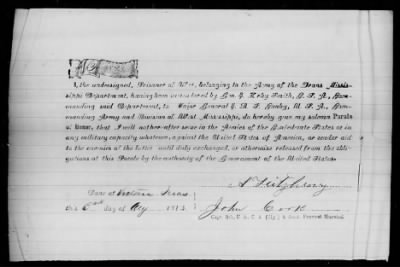 I, the undersigned, Prisoner of War, belonging to the Army of the Trans Missis-
sippi Department, having been surrendered by Gen. E. Kirby Smith, C. S. A., Com-
manding said Department, to Major General E. R. S. Canby, U. S. A., Com-
manding Army and Division of West Mississippi, do hereby give my solemn Parole
of Honor, that I will not hereafter serve in the Armies of the Confederate States or in
any military capacity whatever, against the United States of America, or render aid
to the enemies of the latter until duly exchanged, or otherwise released from the obli-
gations of this Parole by the authority of the Government of the United States.
Fitzhenry
Done at Victoria Texas
this day of Aug 186
John Cook
Provost Marshal